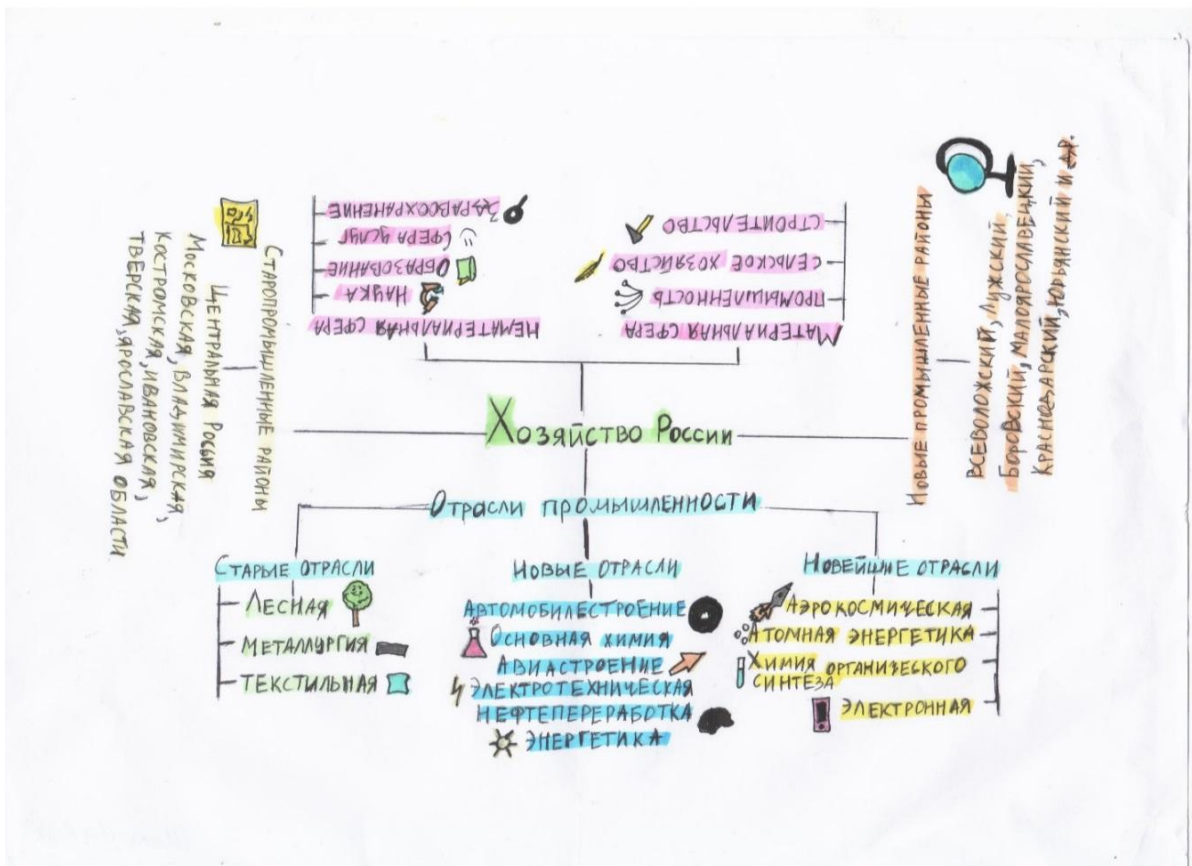 Хозяйство России
Материальная сфера
Промышленность
Сельское хозяйство
Строительство
Нематериальная сфера
Наука
Образование
Сфера услуг
Здравоохранение
Старопромышленные районы
Центральная Россия
Московская, Владимирская,
Костромская, Ивановская,
Тверская, Ярославская области
Новые промышленные районы
Всеволожский, Лужский,
Боровский, Малоярославецкий,
Краснодарский, Юрьянский и др.
Отрасли промышленности
Старые отрасли
Лесная
Металлургия
Текстильная
Новые отрасли
Автомобилестроение
Основная химия
Авиастроение
Электротехническая
Нефтепереработка
Энергетика
Новейшие отрасли
Аэрокосмическая
Атомная энергетика
Химия органического
синтеза
Электронная